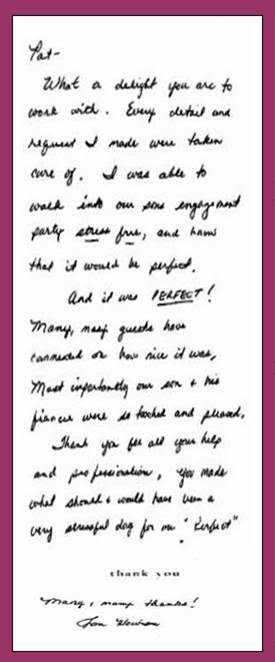 Pat-
What a delight you are to
work with. Every detail and
request I made were taken
care of. I was able to
walk into our sons engagement
party stress free, and know
that it would be perfect.
And it was PERFECT!
Many, many guests have
commented on how nice it was,
Most importantly our son & his
fiancee were so touched and pleased.
Thank you for all your help
and professionalism, you made
what should & would have been a
very stressful day for me "Perfect"
thank you
"Many, many thanks!